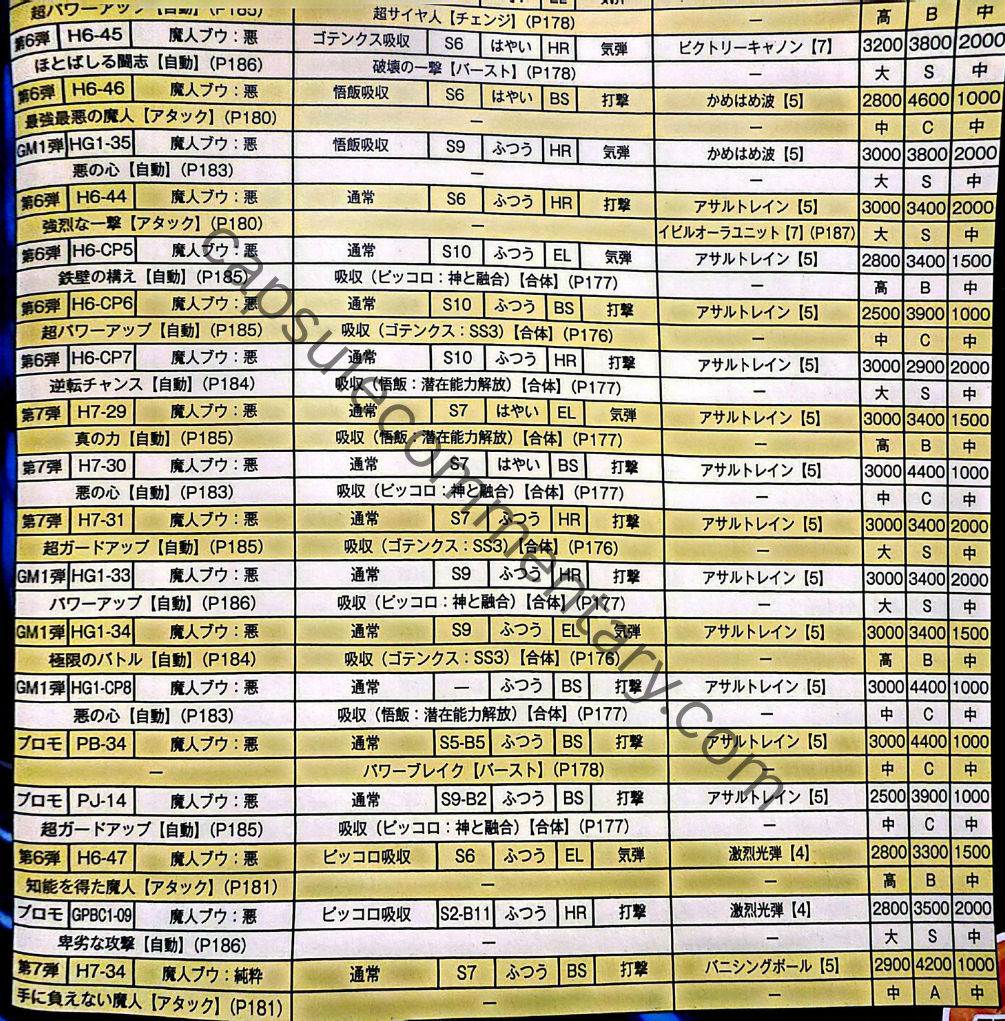 超パワーアップ【自動】(P185) 超サイヤ人【チェンジ】(P178) ― 高 B 中
第6弾 H6-45 魔人ブウ:悪 ゴテンクス吸収 S6 はやい HR 気弾 ビクトリーキャノン【7】 3200 3800 2000
ほとばしる闘志【自動】(P186) 破壊の一撃【バースト】(P178) ― 大 S 中
第6弾 H6-46 魔人ブウ:悪 悟飯吸収 S6 はやい BS 打撃 かめはめ波【5】 2800 4600 1000
最強最悪の魔人【アタック】(P180) ― ― 中 C 中
GM1弾 HG1-35 魔人ブウ:悪 悟飯吸収 S9 ふつう HR 気弾 かめはめ波【5】 3000 3800 2000
悪の心【自動】(P183) ― ― 大 S 中
第6弾 H6-44 魔人ブウ:悪 通常 S6 ふつう HR 打撃 アサルトレイン【5】 3000 3400 2000
強烈な一撃【アタック】(P180) ― イビルオーラユニット【7】(P187) 大 S 中
第6弾 H6-CP5 魔人ブウ:悪 通常 S10 ふつう EL 気弾 アサルトレイン【5】 2800 3400 1500
鉄壁の構え【自動】(P185) 吸収(ピッコロ:神と融合)【合体】(P177) ― 高 B 中
第6弾 H6-CP6 魔人ブウ:悪 通常 S10 ふつう BS 打撃 アサルトレイン【5】 2500 3900 1000
超パワーアップ【自動】(P185) 吸収(ゴテンクス:SS3)【合体】(P176) ― 中 C 中
第6弾 H6-CP7 魔人ブウ:悪 通常 S10 ふつう HR 打撃 アサルトレイン【5】 3000 2900 2000
逆転チャンス【自動】(P184) 吸収(悟飯:潜在能力解放)【合体】(P177) ― 大 S 中
第7弾 H7-29 魔人ブウ:悪 通常 S7 はやい EL 気弾 アサルトレイン【5】 3000 3400 1500
真の力【自動】(P185) 吸収(悟飯:潜在能力解放)【合体】(P177) ― 高 B 中
第7弾 H7-30 魔人ブウ:悪 通常 S7 はやい BS 打撃 アサルトレイン【5】 3000 4400 1000
悪の心【自動】(P183) 吸収(ピッコロ:神と融合)【合体】(P177) ― 中 C 中
第7弾 H7-31 魔人ブウ:悪 通常 S7 ふつう HR 打撃 アサルトレイン【5】 3000 3400 2000
超ガードアップ【自動】(P185) 吸収(ゴテンクス:SS3)【合体】(P176) ― 大 S 中
GM1弾 HG1-33 魔人ブウ:悪 通常 S9 ふつう HR 打撃 アサルトレイン【5】 3000 3400 2000
パワーアップ【自動】(P186) 吸収(ピッコロ:神と融合)【合体】(P177) ― 大 S 中
GM1弾 HG1-34 魔人ブウ:悪 通常 S9 ふつう EL 気弾 アサルトレイン【5】 3000 3400 1500
極限のバトル【自動】(P184) 吸収(ゴテンクス:SS3)【合体】(P176) ― 高 B 中
GM1弾 HG1-CP8 魔人ブウ:悪 通常 ― ふつう BS 打撃 アサルトレイン【5】 3000 4400 1000
悪の心【自動】(P183) 吸収(悟飯:潜在能力解放)【合体】(P177) ― 中 C 中
プロモ PB-34 魔人ブウ:悪 通常 S5-B5 ふつう BS 打撃 アサルトレイン【5】 3000 4400 1000
― パワーブレイク【バースト】(P178) ― 中 C 中
プロモ PJ-14 魔人ブウ:悪 通常 S9-B2 ふつう BS 打撃 アサルトレイン【5】 2500 3900 1000
超ガードアップ【自動】(P185) 吸収(ピッコロ:神と融合)【合体】(P177) ― 中 C 中
第6弾 H6-47 魔人ブウ:悪 ピッコロ吸収 S6 ふつう EL 気弾 激烈光弾【4】 2800 3300 1500
知能を得た魔人【アタック】(P181) ― ― 高 B 中
プロモ GPBC1-09 魔人ブウ:悪 ピッコロ吸収 S2-B11 ふつう HR 打撃 激烈光弾【4】 2800 3500 2000
卑劣な攻撃【自動】(P186) ― ― 大 S 中
第7弾 H7-34 魔人ブウ:純粋 通常 S7 ふつう BS 打撃 バニシングボール【5】 2900 4200 1000
手に負えない魔人【アタック】(P181) ― ― 中 A 中
capsulecommentary.com